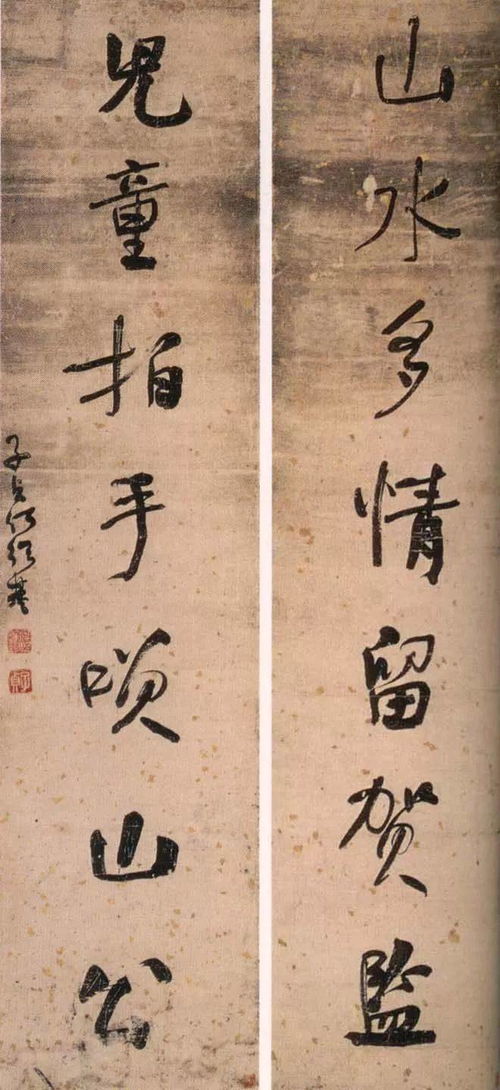 山水多情留賀監
兒童拍手喚山公
子貞何紹基